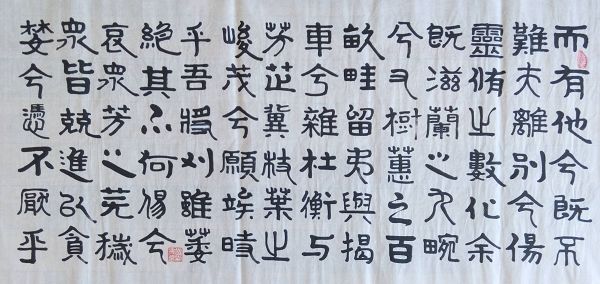 而有他兮既不
難夫離別兮傷
靈脩之數化余
既滋蘭之九畹
兮又樹蕙之百
畝畦留夷與揭
車兮雜杜衡与
芳芷冀枝葉之
峻茂兮願竢時
乎吾將刈雖萎
絕其亦何傷兮
哀眾芳之芜穢
眾皆競進以貪
婪兮憑不厭乎